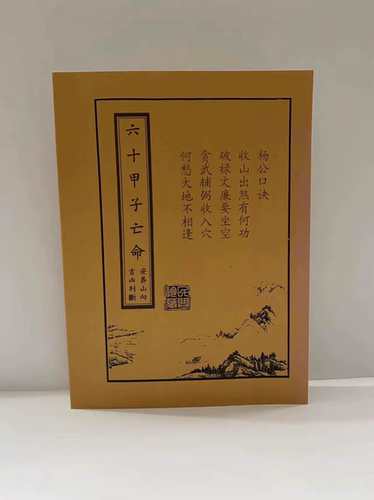 杨公口诀
收山出煞有何功
破禄文廉要坐空
贪武辅弼收入穴
何愁大地不相逢
六十甲子亡命
安葬山向
吉凶判斷